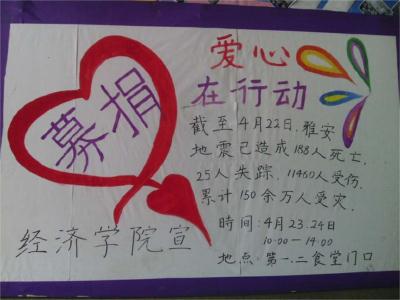 爱心
在行动
募捐
截至4月22日,雅安
地震已造成188人死亡,
25人失踪,11460人受伤,
累计150余万人受灾.
时间:4月23.24日
10:00—14:00
地点:第一.二食堂门口
经济学院宣